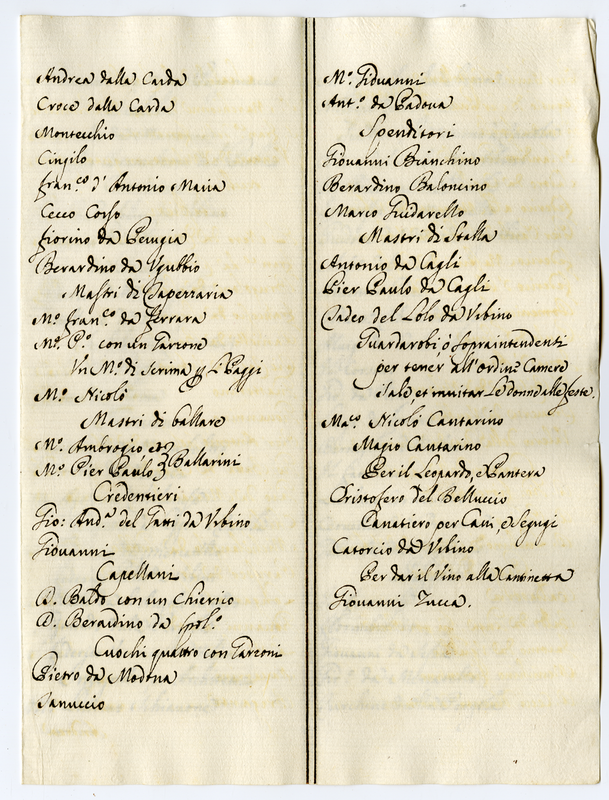 Andrea dalla Carda
Croce dalla Carda
Montecchio
Cingilo
fran.co d' Antonio Maria
Cecco Corso
fiorino da Perugia
Berardino da Vgubbio
Mastri di Taperraria
M.o fran.co da Ferrara
M.o P.o con un Garzone
Vn M.o di Scrima p Li Paggi
M.o Nicolò
Mastri di ballare
M.o Ambrogio et
M.o Pier Paulo Ballarini
Credentieri
Gio: And.a del Gatti da Vrbino
Giovanni
Capellani
D. Baldo con un Chierico
D. Berardino da
Cuochi quattro con Garzoni
Pietro da Modona
Janaccio
M.o Giovanni
Ant.o da Padova
Spenditori
Giovanni Bianchino
Berardino Baloncino
Marco Guidarello
Mastri di Stalla
Antonio da Cagli
Pier Paulo da Cagli
Tadeo del Lolo da Vrbino
Guardarobi, ò sopraintendenti
per tener all'ordine Camere
i Sale, et invitar Le Donne alle feste.
Ma.o Nicolò Cantarino
Magio Cantarino
Per il Leopardo, e Pantera
Cristofero del Belluccio
Canatiero per Cani, e Segugi
Catorcio da Vrbino
Per dar il Vino alla Cantinetta
Giovanni Zucca.